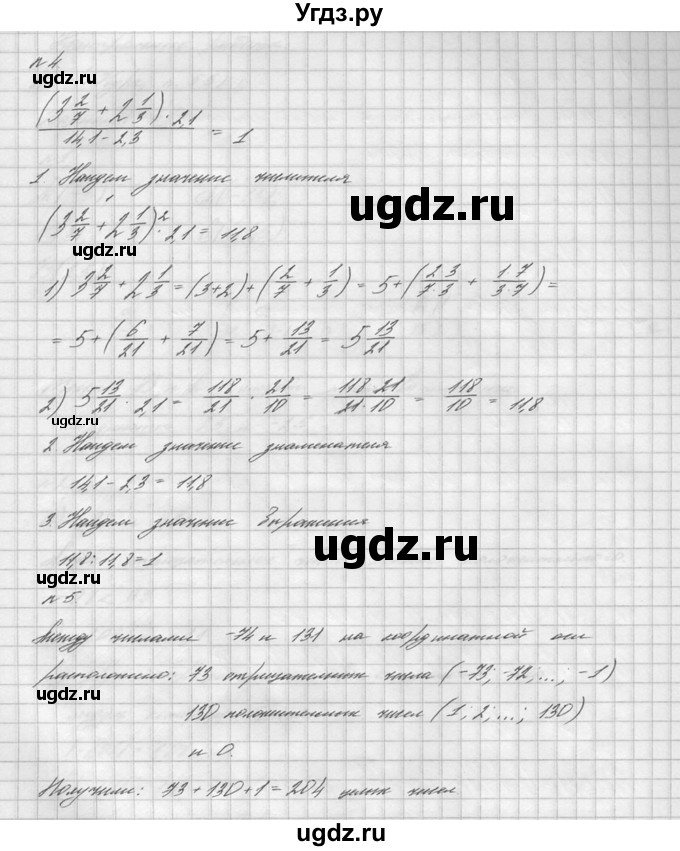 Угдз.ру
n 4.
ugdz.ru
(3 2/7 + 2 1/3) · 2,1 / 14,1 - 2,3 = 1
1. Найдем значение числителя
ugdz.ru
(3 2/7 +¹ 2 1/3) ·² 2,1 = 11,8
ugdz.ru
1) 3 2/7 + 2 1/3 = (3+2) + (2/7 + 1/3) = 5 + (2·3/7·3 + 1·7/3·7) =
= 5 + (6/21 + 7/21) = 5 + 13/21 = 5 13/21
2) 5 13/21 · 2,1 = 118/21 · 21/10 = 118·21/21·10 = 118/10 = 11,8
ugdz.ru
2. Найдем значение знаменателя
14,1 - 2,3 = 11,8
3. Найдем значение Выражения
ugdz.ru
11,8 : 11,8 = 1
ugdz.ru
n 5.
Между числами -74 и 131 на координатной оси
расположено: 73 отрицательных числа (-73; -72; ...; -1)
ugdz.ru
130 положительных чисел (1; 2; ...; 130)
и 0.
Получили: 73 + 130 + 1 = 204 целых чисел
ugdz.ru
ugdz.ru